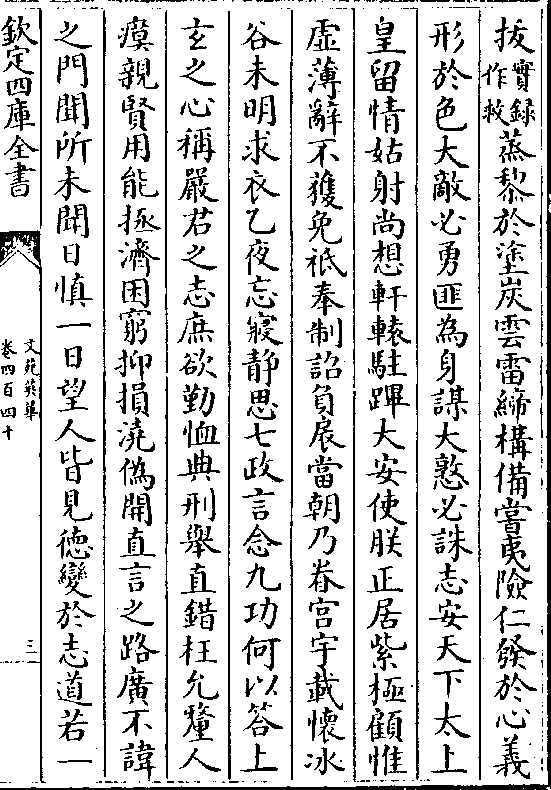 拔實録作救蒸黎於塗炭雲雷締構備嘗夷險仁發於心義
形於色大敵必勇匪為身謀大憝必誅志安天下太上
皇留情姑射尚想軒轅駐蹕大安使朕正居紫極顧惟
虛薄辭不獲免祗奉制詔負扆當朝乃眷宫宇載懷冰
谷未明求衣乙夜忘寢静思七政言念九功何以答上
玄之心稱嚴君之志庶欲勤恤典刑舉直錯枉允釐人
瘼親賢用能拯濟困窮抑損澆偽開直言之路廣不諱
之門聞所未聞日慎一日望人皆見德變於志道若一
欽定四庫全書
文苑英華
卷四百四十
三